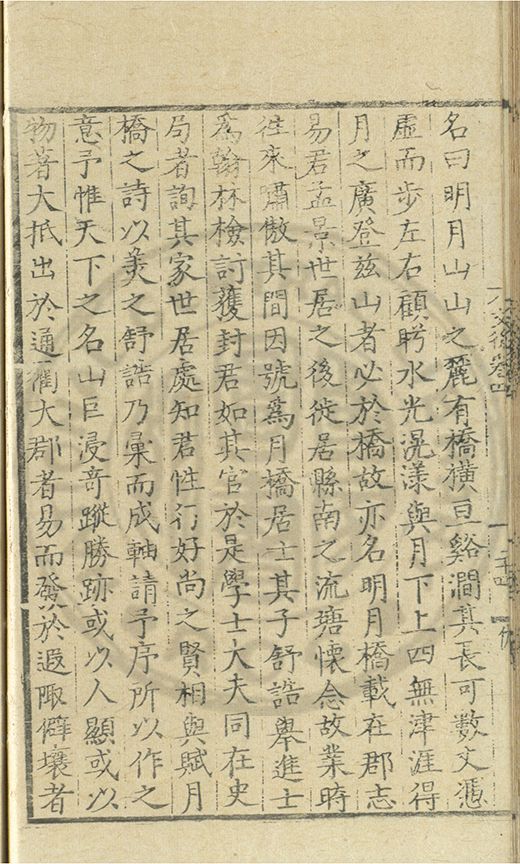 名曰明月山山之麓有橋横亘谿澗其長可數丈憑
虛而步左右顧眄水光滉漾與月下上四無津涯得
月之廣登兹山者必於橋故亦名明月橋載在郡志
易君孟景世居之後徙居縣南之流塘懷念故業時
徃來嘯傲其間因號爲月橋居士其子舒誥舉進士
爲翰林檢討獲封君如其官於是學士大夫同在史
局者詢其家世居處知君性行好尚之賢相與賦月
橋之詩以羙之舒誥乃彙而成軸請予序所以作之
意予惟天下之名山巨浸奇蹤勝跡或以人顯或以
物著大抵出於通衢大郡者易而發於遐陬僻壤者